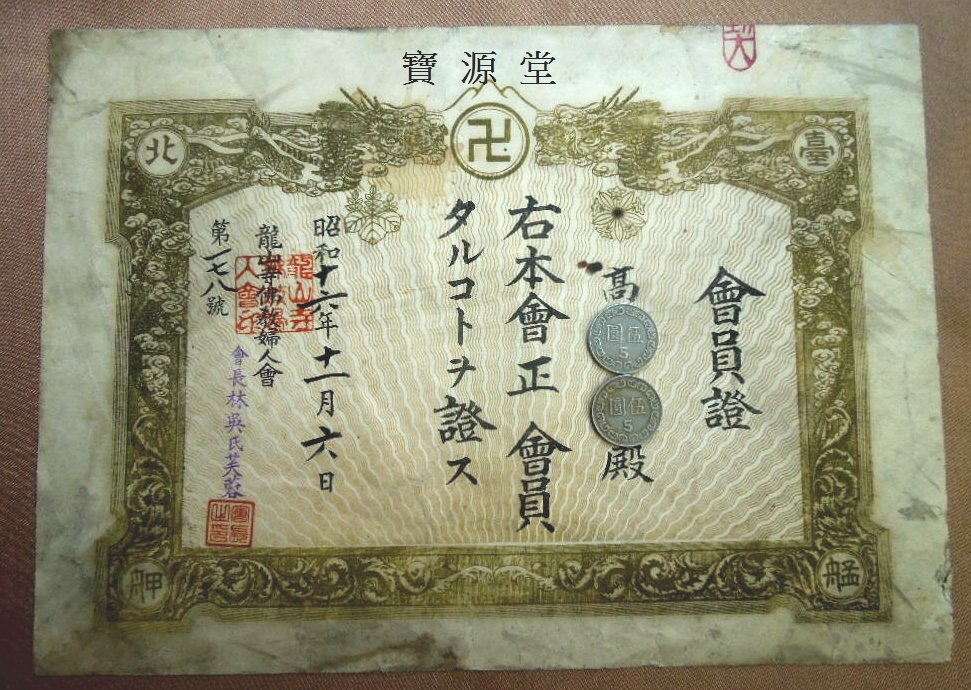 寶源堂
卍
臺
北
艋
舺
會員證
高
殿
伍圓
5
伍圓
5
右本會正會員
タルコトヲ證ス
昭和十六年十一月六日
龍山寺佛教婦人會
會長林吳氏芙蓉
第一七八號
龍山寺佛教婦人會印
會長之印